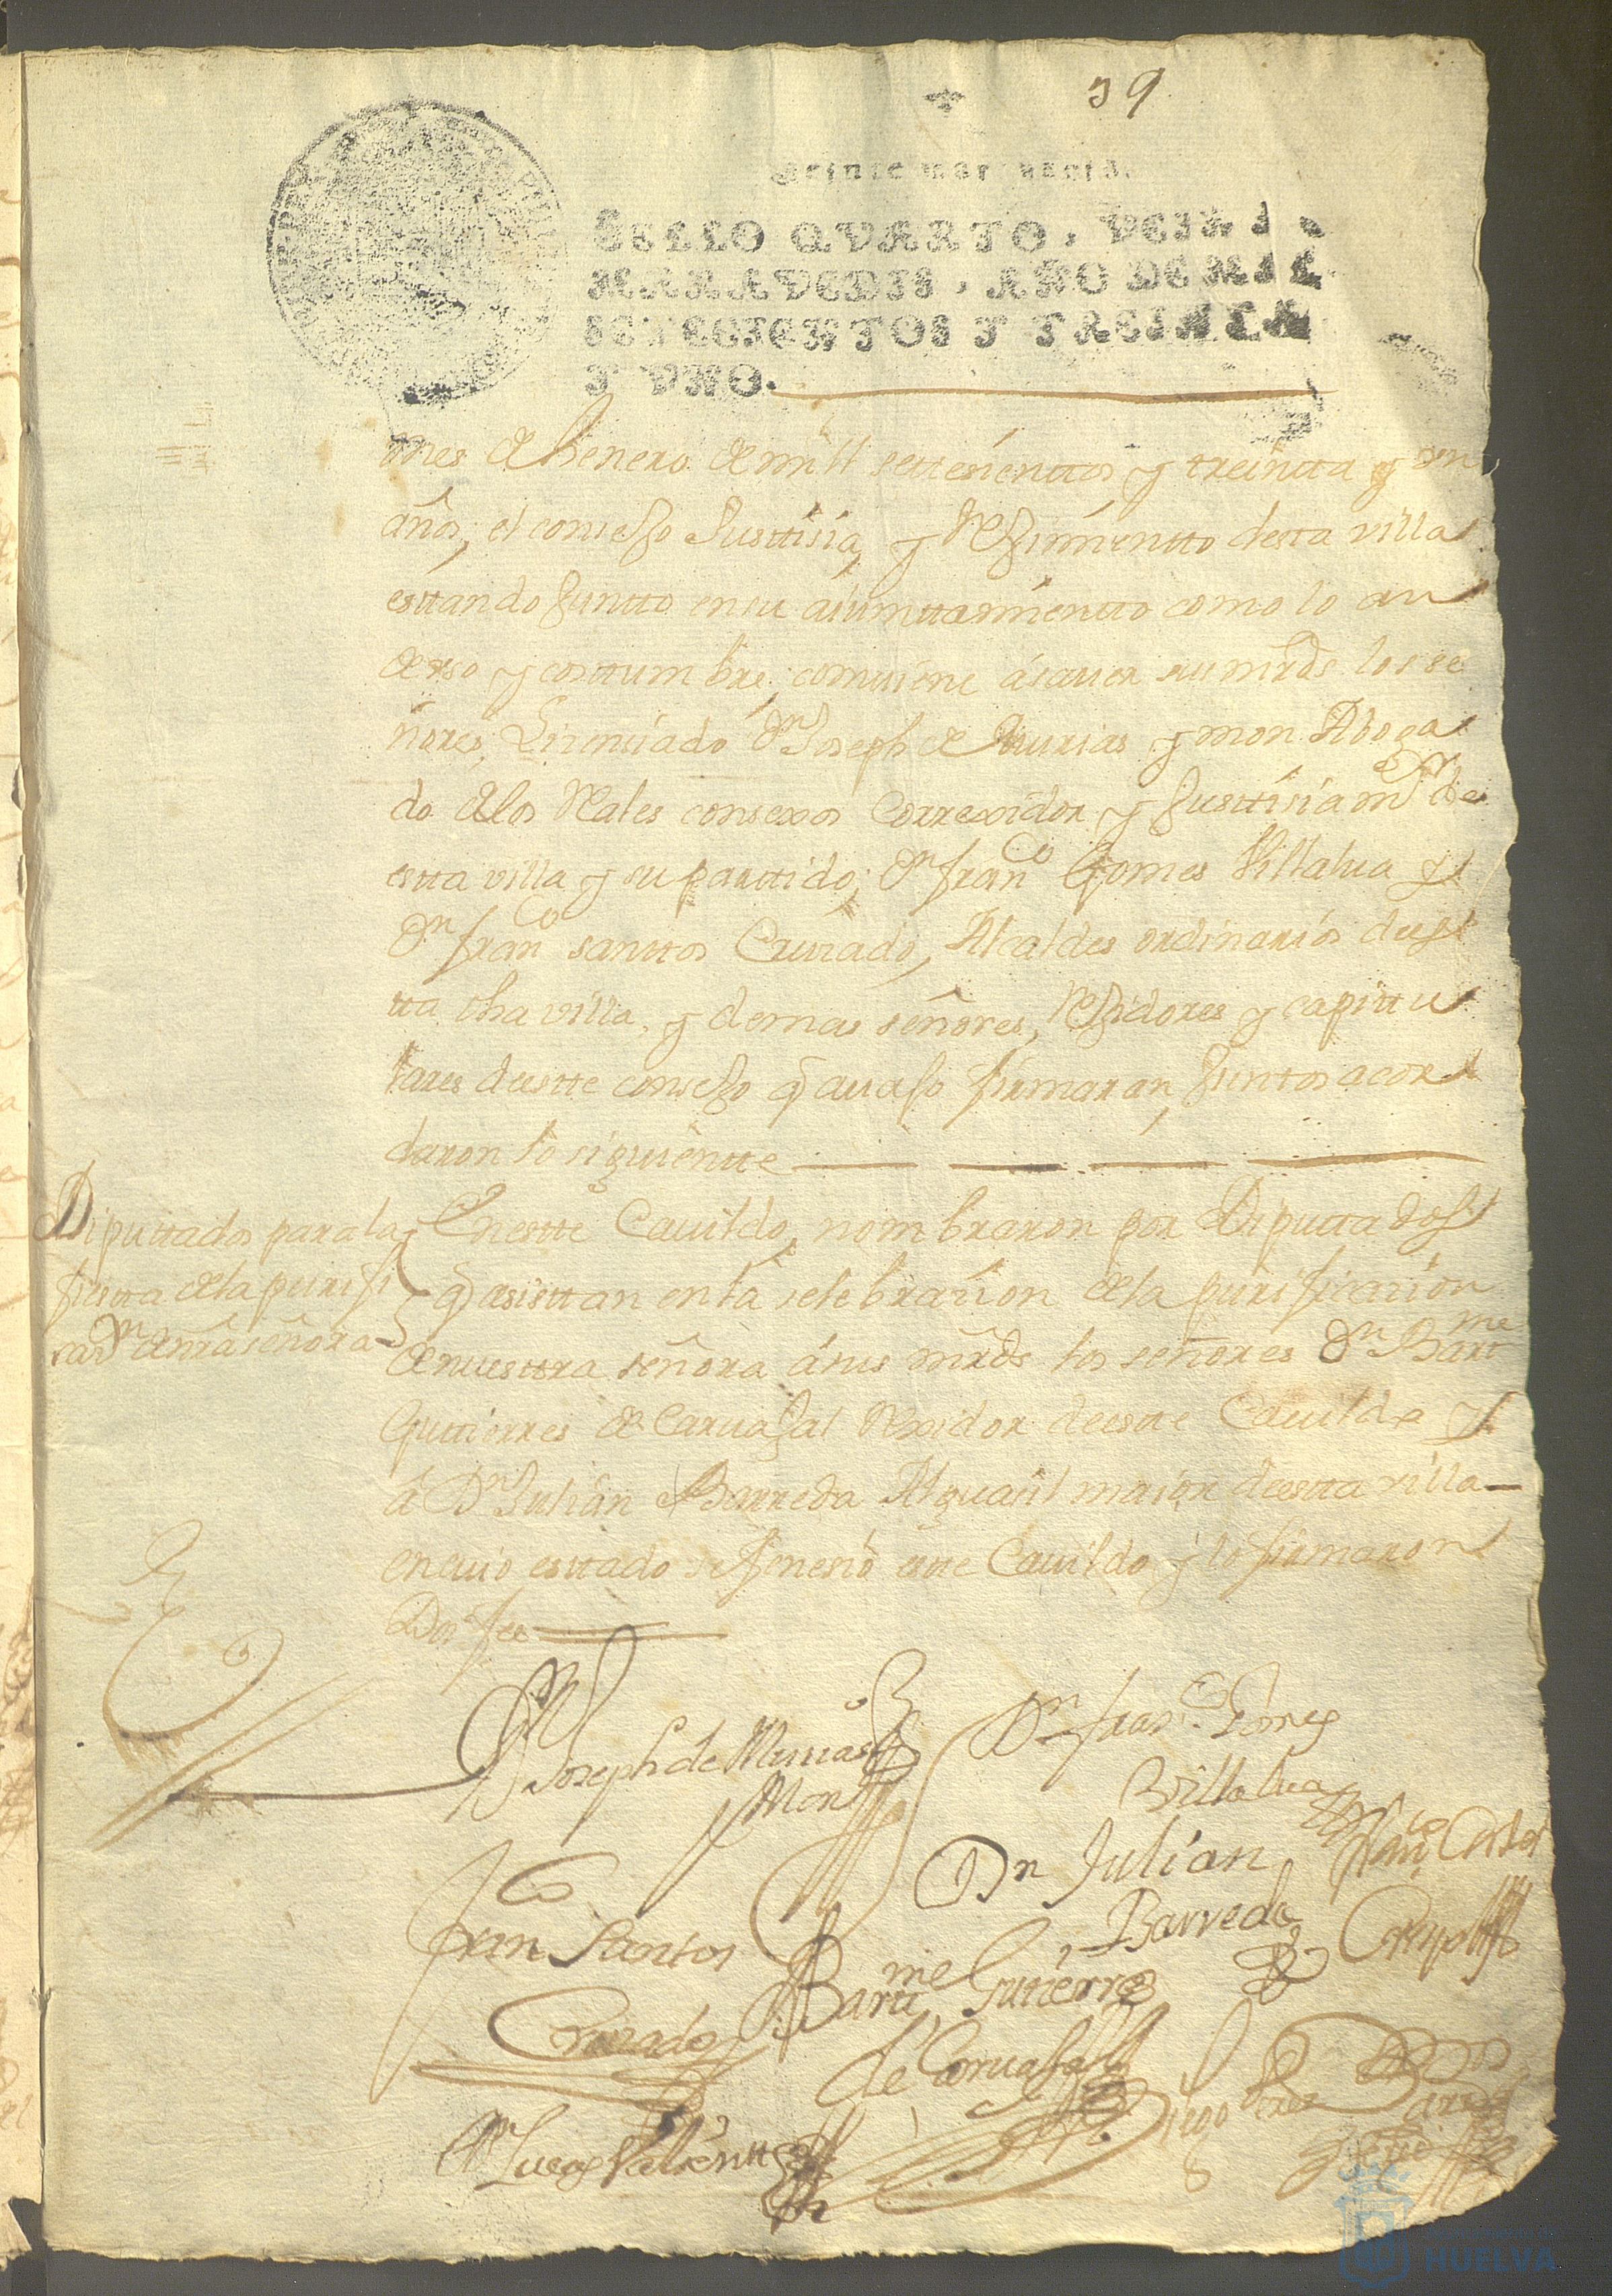 39
Veinte maravedis.
SELLO QVARTO, VEINTE
MARAVEDIS, AÑO DE MIL
SETECIENTOS Y TREINTA
Y VNO.
mes de henero de mill settesienttos y treintta y un
años, el consejo Justtisia, y Rejimientto desta villa
esttando Juntto en su aiunttamientto como lo an
de uso y costtumbre, combiene á sauer sus mrds los se
ñores, Lisensiado Dn Joseph de Murias y mon Aboga
do de los Rales consexos Correxidor y Justtisia mor de
estta villa y su parttido; Dn franco Gomes Villalua y
Dn franco santtos Cruzado, Alcaldes ordinarios de es
tta dha villa, y demas señores, Rejidores y capittu
lares de estte consejo q auajo firmaran, Juntos acor
daron lo siguientte
Diputtados para la
fiestta de la purifi
casn de nra señora
En estte Cauildo, nombraron por Diputtados
q asisttan en la selebrasion de la purificasion
de nuesttra señora á sus mrds los señores Dn Bartme
Gutierres de Caruajal Rexidor de estte Cauildo y
á Dn Julian Barreda Alguasil maior de estta villa
en cuio esttado se fenesió estte Cauildo y lo firmaron
Doi fee
Dn Joseph de Murias
y Mon
Dn franco Gomes
Villalua
Dn Julian
Barreda
Franco Santos
Cruzado
Barttme Gutierres
de Caruajal
Dn Lucas Valientte
Diego Perez
HUELVA